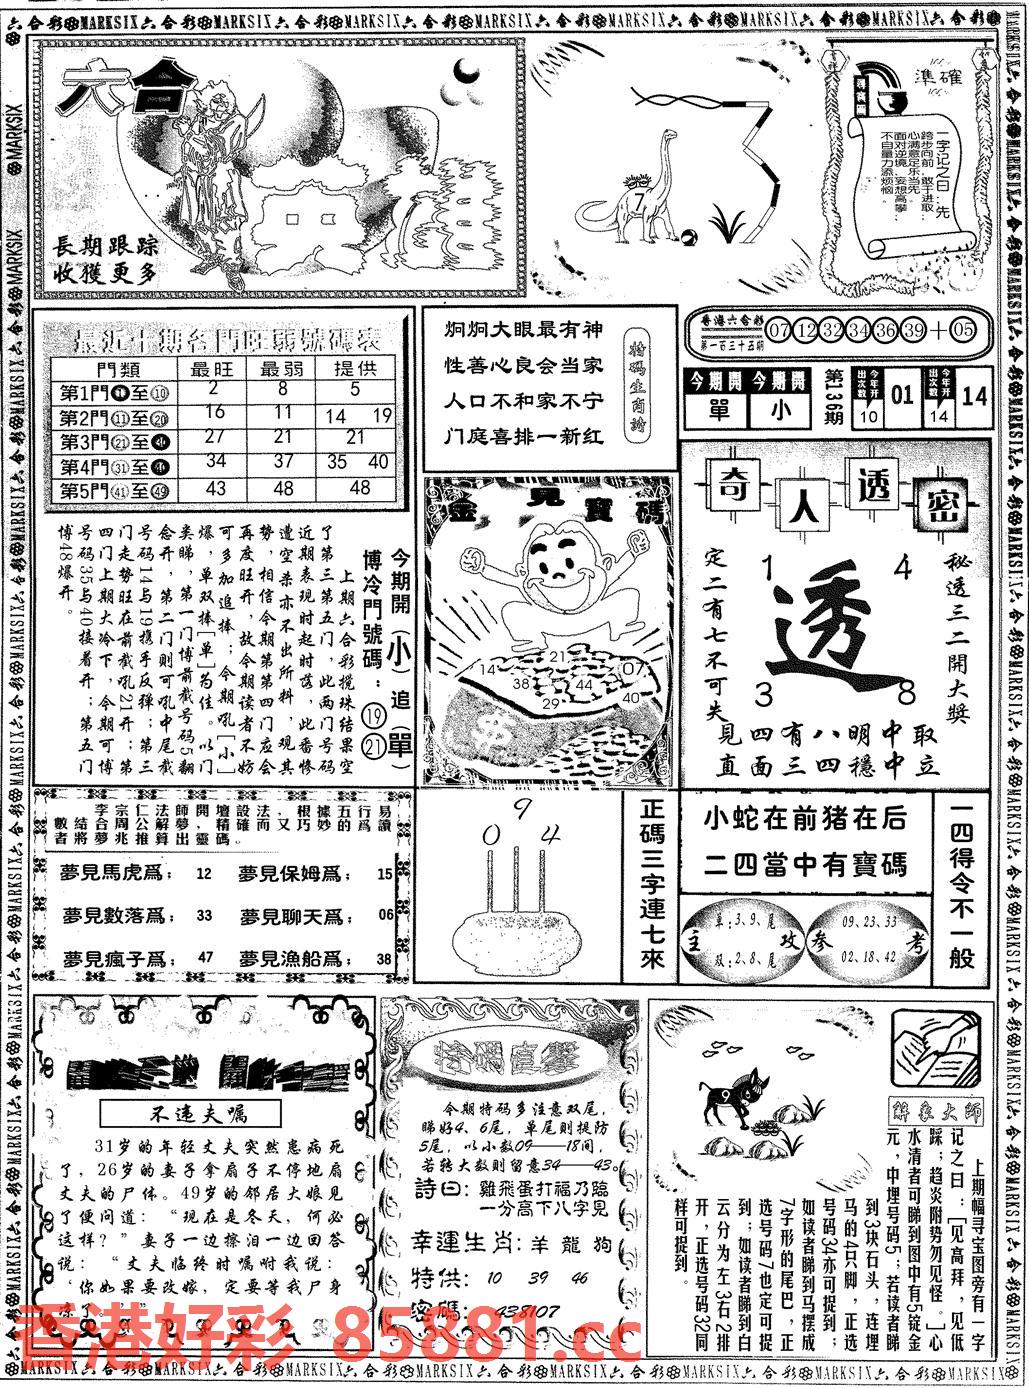 六合彩MARKSIX六合彩MARKSIX六合彩MARKSIX六合彩MARKSIX六合彩MARKSIX六合彩
六合
長期跟踪
收獲更多
7
準確
一字记之曰：先
跨步向前，敢于进取；
心满意足乐当先
面对逆境，妄想高攀；
不自量力添烦恼。
最近十期各門旺弱號碼表
門類 最旺 最弱 提供
第1門①至⑩ 2 8 5
第2門⑪至⑳ 16 11 14 19
第3門㉑至㉚ 27 21 21
第4門㉛至㊵ 34 37 35 40
第5門㊶至㊾ 43 48 48
炯炯大眼最有神
性善心良会当家
人口不和家不宁
门庭喜排一新红
特碼生肖詩
香港六合彩
第一百三十五期
07 12 32 34 36 39 + 05
今期開 今期開
單 小
第136期
今年开出次数 10
01
今年开出次数 14
14
今期開（小）追（單）
博冷門號碼：⑲㉑
上期六合彩搅珠结果空
了第三第五门，此两门号码
近期表现时起时落，此番惨
遭空杀亦不出所料，观其
势，相信今期第四门应会
再度旺开，故今期读者不妨
可多加追捧；今期吼[小]
爆，单双捧[单]为佳。以门
类睇，第一门博前截号码5翻
念开，第二门则可吼中尾截
号码14与19携手反弹；第三
门走势旺在前截吼21开；第
四门上期大冷下，今期可博
号码35与40接着开；第五门
博48爆开。
金見寶碼
14 21 07
38 44
29 40
奇人透密
秘透三二開大獎
定二有七不可失
1 4
透
3 8
見四有八明中取
直面三四穩中立
李宗仁法師開壇設法，根據五行易
數結合周公解夢，精確而又巧妙的爲讀
者將夢兆推算出靈碼。
夢見馬虎爲； 12 夢見保姆爲； 15
夢見數落爲； 33 夢見聊天爲； 06
夢見瘋子爲； 47 夢見漁船爲； 38
9
0 4
正碼三字連七來
小蛇在前猪在后
二四當中有寶碼
主攻
单：3、9、尾
双：2、8、尾
参考
09、23、33
02、18、42
一四得令不一般
不违夫嘱
31岁的年轻丈夫突然患病死
了，26岁的妻子拿扇子不停地扇
丈夫的尸体。49岁的邻居大娘见
了便问道：“现在是冬天，何必
这样？”妻子一边擦泪一边回答
说：“丈夫临终时嘱咐我说：
‘你如果要改嫁，定要等我尸身
凉了。’”
特碼直擊
今期特码多注意双尾，
睇好4、6尾，单尾则提防
5尾，以小数09——18间，
若转大数则留意34——43。
詩曰：雞飛蛋打福乃臨
一分高下八字見
幸運生肖：羊 龍 狗
特供： 10 39 46
密碼： 438107
9
解象大師
上期幅寻宝图旁有一字
记之曰：[见高拜，见低
踩；趋炎附势勿见怪。]心
水清者可睇到图中有5锭金
元，中埋号码5；若读者睇
到3块石头，连埋
马的4只脚，正选
号码34亦可捉到；
如读者睇到马摆成
7字形的尾巴，正
选号码7也定可捉
到；如读者睇到白
云分为左3右2排
开，正选号码32同
样可捉到。
香港好彩 85881.cc
MARKSIX六合彩MARKSIX六合彩MARKSIX六合彩MARKSIX六合彩MARKSIX六合彩MARKSIX